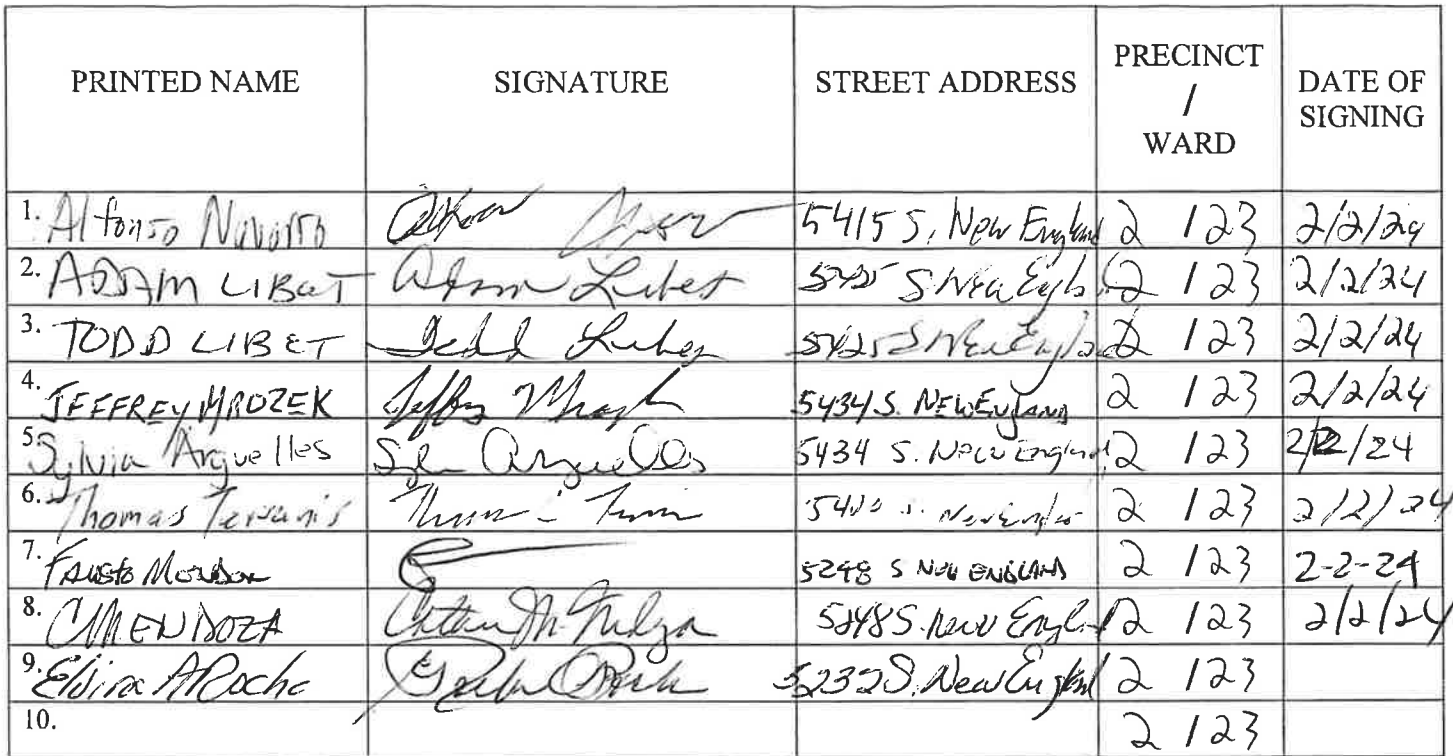 PRINTED NAME SIGNATURE STREET ADDRESS PRECINCT / WARD DATE OF SIGNING
1. Alfonso Navarro 5415 S. New England 2 / 23 2/2/24
2. ADAM LIBET Adam Libet 5425 S New Engla 2 / 23 2/2/24
3. TODD LIBET Todd Libet 5425 S New England 2 / 23 2/2/24
4. JEFFREY MROZEK 5434 S. NEW ENGLAND 2 / 23 2/2/24
5. Sylvia Arguelles Arguelles 5434 S. New England 2 / 23 2/2/24
6. Thomas 2 / 23 2/2/24
7. FAUSTO 5248 S NEW ENGLAND 2 / 23 2-2-24
8. C MENDOZA 5248 S. New Engl 2 / 23 2/2/24
9. Elvira A Rocha 5232 S. New England 2 / 23
10. 2 / 23